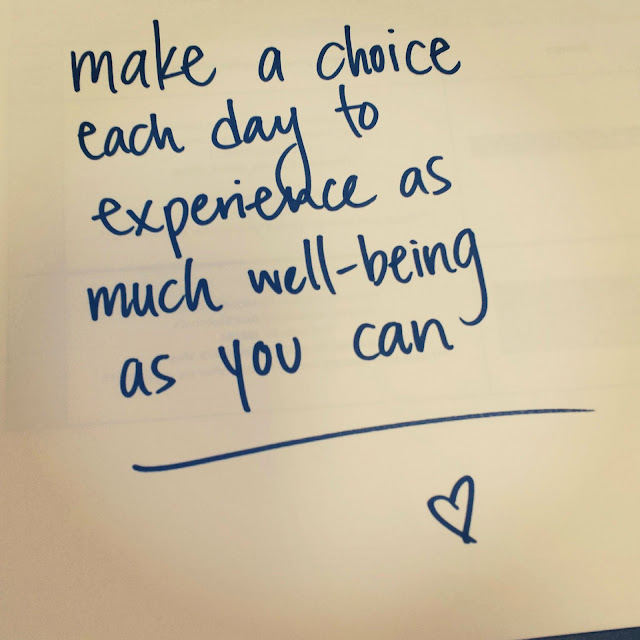 make a choice
each day to
experience as
much well-being
as you can